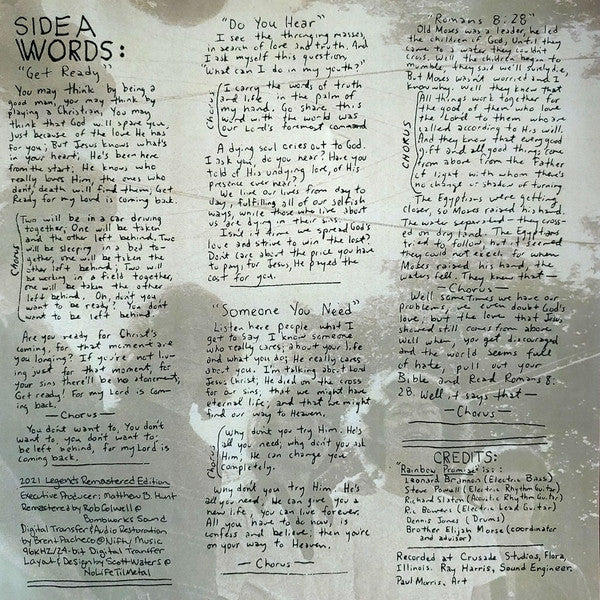 SIDE A
WORDS:
"Get Ready"
You may think by being a
good man, you may think by
playing a Christian, You may
think that God will spare you,
just because of the love He has
for you; But Jesus knows what's
in your heart; He's been here
from the start; He knows who
really loves Him, the ones who
don't, death will find them; Get
Ready for my Lord is coming back.
Chorus
Two will be in a car driving
together, One will be taken
and the other left behind. Two
will be sleeping in a bed to-
gether, one will be taken the
other left behind; Two will
be working in a field together,
one will be taken the other
left behind. On, don't you
want to be ready? You don't
want to be left behind.
Are you ready for Christ's
coming, for that moment are
you longing? If you're not liv-
ing just for that moment, for
your sins there'll be no atonement;
Get ready! For my Lord is com-
ing back.
— Chorus —
You don't want to, You don't
want to, you don't want to,
be left behind, for my Lord is
coming back.
2021 Legends Remastered Edition
Executive Producer: Matthew B. Hunt
Remastered by Rob Colwell @
Bombworks Sound
Digital Transfer & Audio Restoration
by Brent Pacheco @ Nifty Music
96KHZ/24-bit Digital Transfer
Layout & Design by Scott Waters @
NoLifeTilMetal
"Do You Hear"
I see the thronging masses,
in search of love and truth. And
I ask myself this question,
"What can I do in my youth?"
Chorus
I carry the words of truth
and life in the palm of
my hand. Go share this
word with the world was
our Lord's foremost command
A dying soul cries out to God.
I ask you, do you hear? Have you
told of His undying love, or His
presence ever near?
We live our lives from day to
day, fulfilling all of our selfish
ways, while those who live about
us are dying in their sins.
Isn't it time we spread God's
love and strive to win the lost?
Don't care about the price you have
to pay; for Jesus, He payed the
cost for you.
"Someone You Need"
Listen here people what I
got to say, I know someone
who really cares; about your life
and what you do; He really cares
about you. I'm talking about Lord
Jesus Christ; He died on the cross
for our sins, that we might have
eternal life, and that we might
find our way to Heaven.
Chorus
Why don't you try Him. He's
all you need; why don't you ask
Him, He can change you
completely.
Why don't you try Him. He's
all you need, He can give you a
new life, you can live forever.
All you have to do now, is
confess and believe, then you're
on your way to Heaven.
— Chorus —
"Romans 8:28"
Old Moses was a leader, he led
the children of God, Until they
came to a water they couldn't
cross. Well the children began to
mumble, they said we'll surely die,
But Moses wasn't worried and I
know why. Well they knew that
CHORUS
All things work together for
the good of them who love
the Lord to them who are
called according to His will.
And they knew that every good
gift and all good things come
from above from the Father
of light with whom there's
no change or shadow of turning
The Egyptians were getting
closer, so Moses raised his hand.
The water separated – they cross-
ed on dry land. The Egyptians
tried to follow, but it seemed
they could not excell for when
Moses raised his hand, the
waters fell. They knew that —
— Chorus —
Well sometimes we have our
problems, we even doubt God's
love, but the love that Jesus
showed still comes from above
Well when you get discouraged
and the world seems full
of hate, pull out your
Bible and Read Romans 8:
28. Well it says that —
— Chorus —
CREDITS:
"Rainbow Promise" is:
Leonard Brannon (Electric Bass)
Steve Powell (Electric Rhythm Guitar)
Richard Slaton (Acoustic Rhythm Guitar)
R.L. Bowers (Electric Lead Guitar)
Dennis Jones (Drums)
Brother Elijah Morse (coordinator
and advisor)
Recorded at Crusade Studios, Flora,
Illinois. Ray Harris, Sound Engineer.
Paul Morris, Art